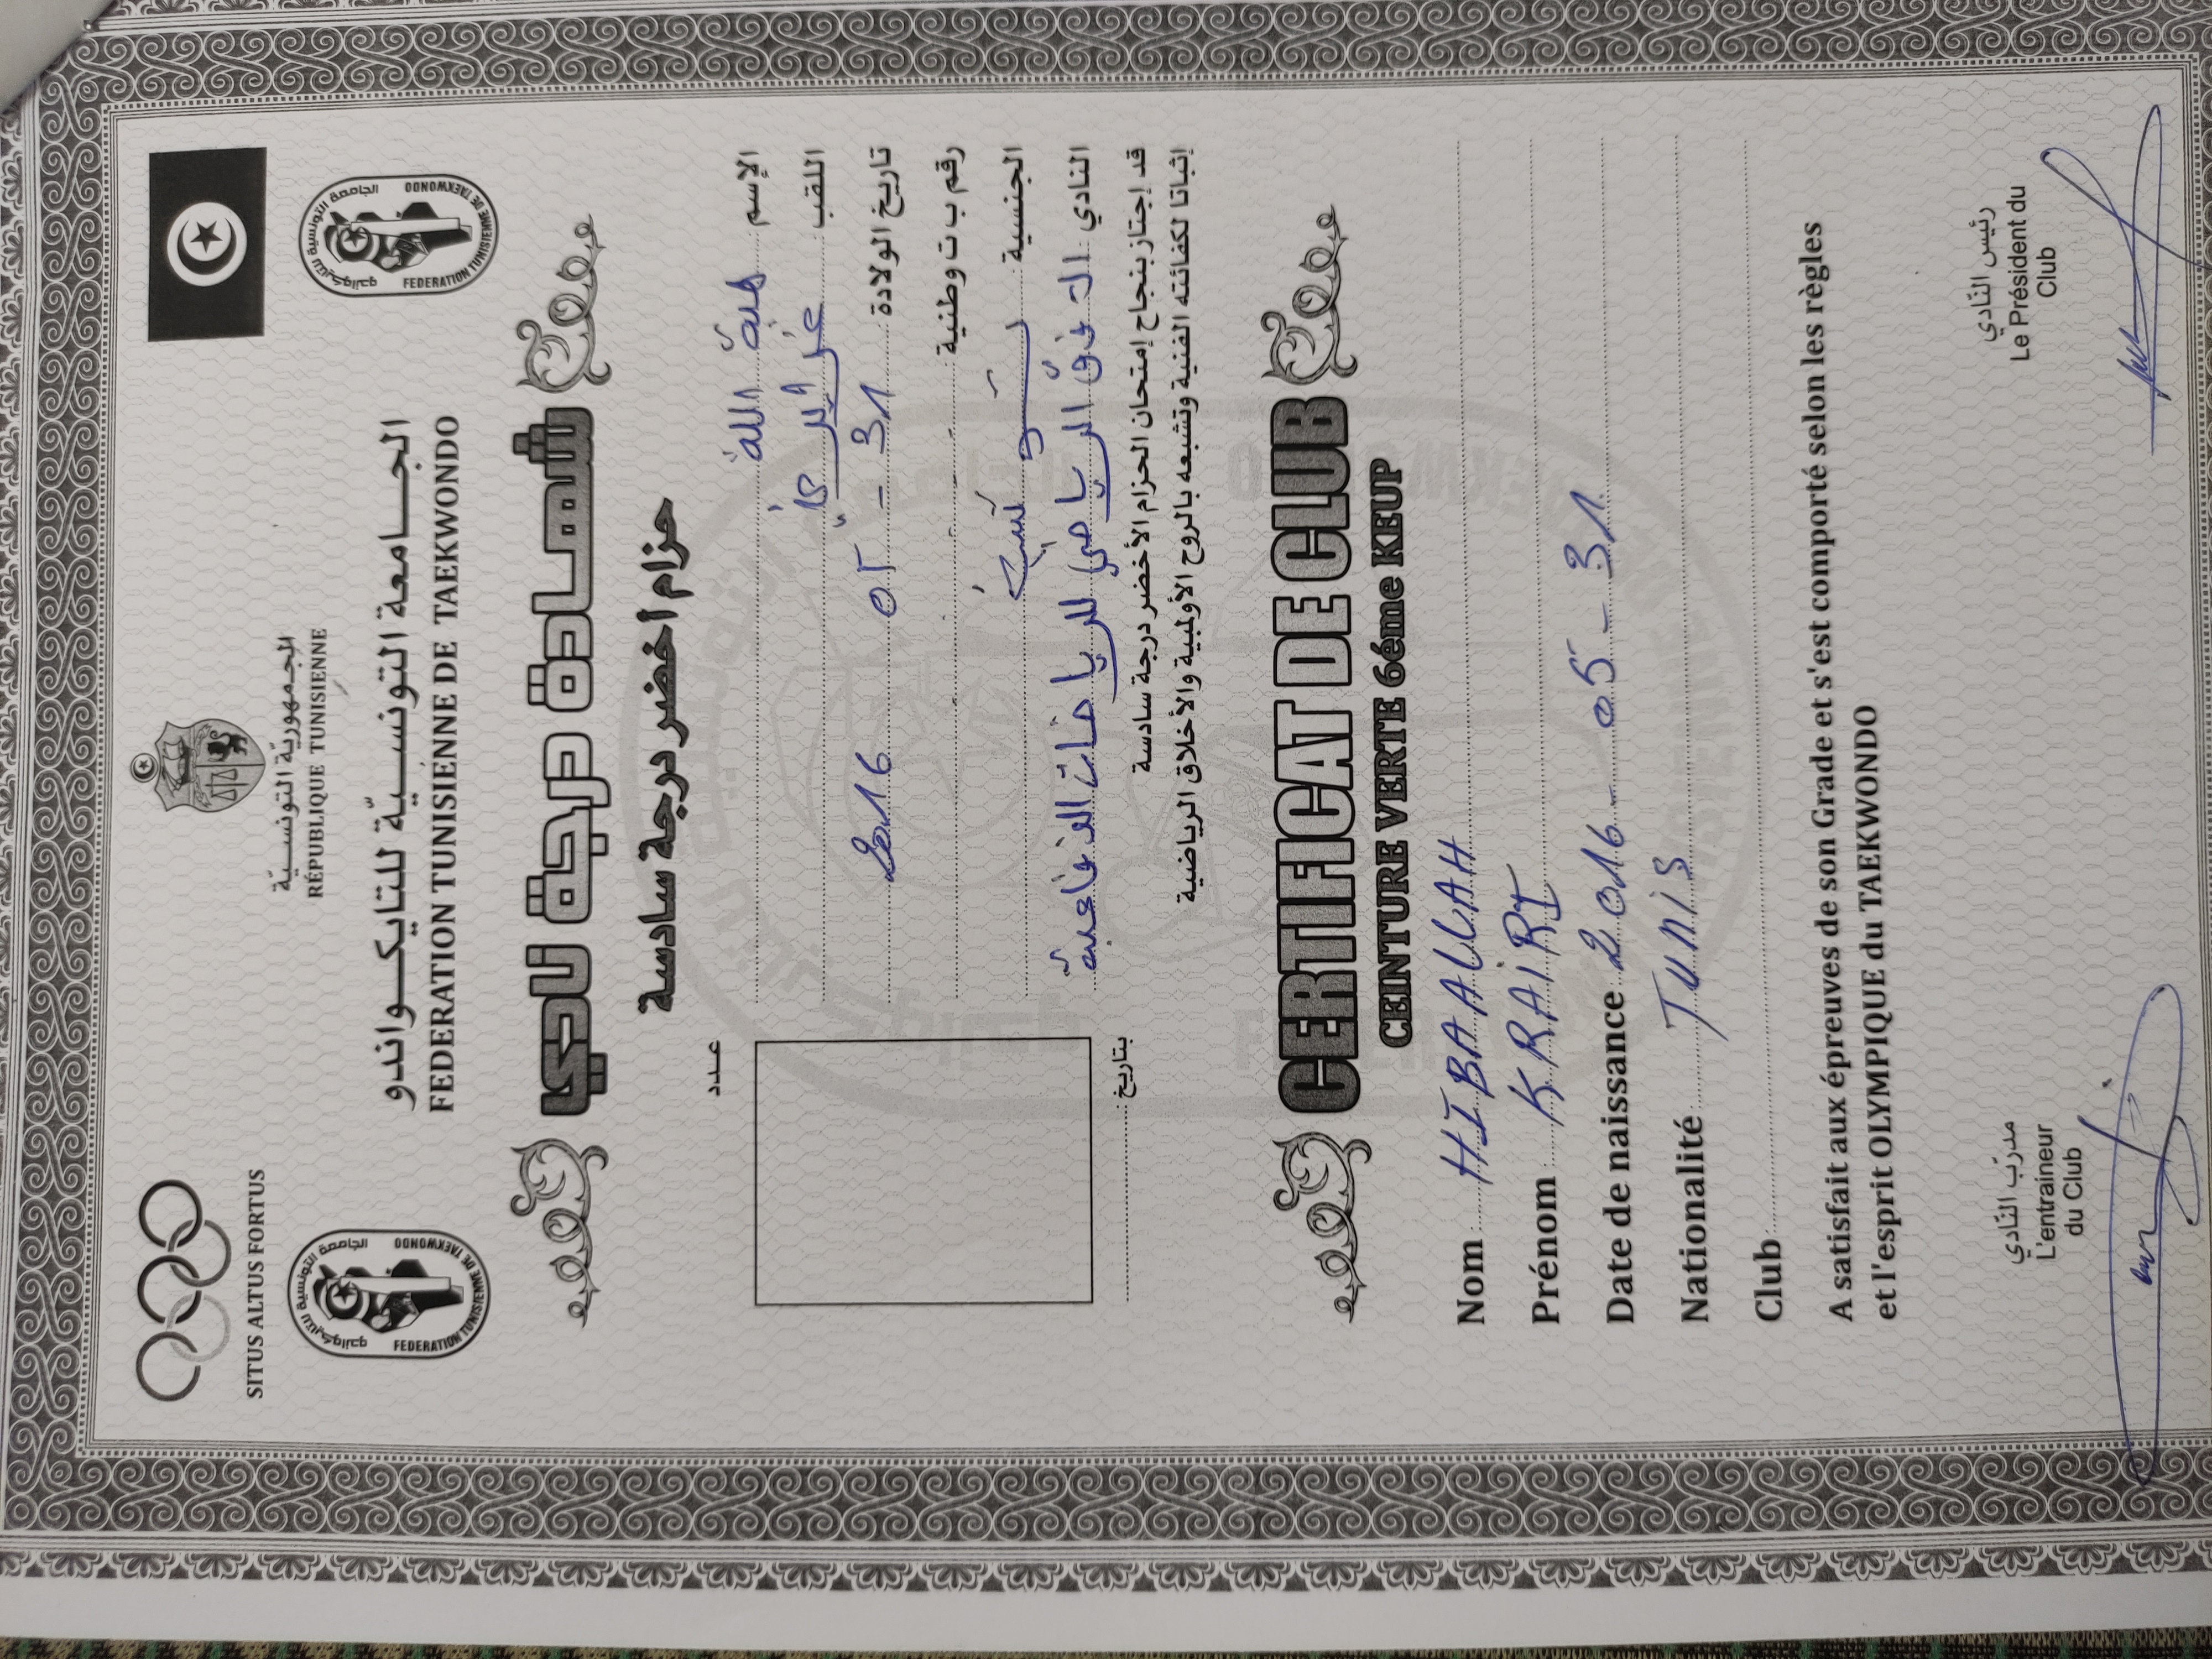 SITUS ALTUS FORTUS
الجمهورية التونسية
RÉPUBLIQUE TUNISIENNE
الجامعة التونسية للتايكواندو
FEDERATION TUNISIENNE DE TAEKWONDO
الجامعة التونسية للتايكواندو
FEDERATION TUNISIENNE DE TAEKWONDO
الجامعة التونسية للتايكواندو
FEDERATION TUNISIENNE DE TAEKWONDO
شهادة درجة نادي
حزام أخضر درجة سادسة
عدد
الإسم هبة الله
اللقب
تاريخ الولادة 31 - 05 2016
رقم ب ت وطنية
الجنسية
النادي الرياضي للرياضات الدفاعية
بتاريخ
قد إجتاز بنجاح إمتحان الحزام الأخضر درجة سادسة
إثباتا لكفائته الفنية وتشبعه بالروح الأولمبية والأخلاق الرياضية
CERTIFICAT DE CLUB
CEINTURE VERTE 6éme KEUP
Nom : HIBA ALLAH
Prénom : KRAIRI
Date de naissance 2016 - 05 - 31
Nationalité Tunis
Club :
A satisfait aux épreuves de son Grade et s'est comporté selon les règles
et l'esprit OLYMPIQUE du TAEKWONDO
مدرّب النّادي
L'entraineur
du Club
رئيس النّادي
Le Président du
Club